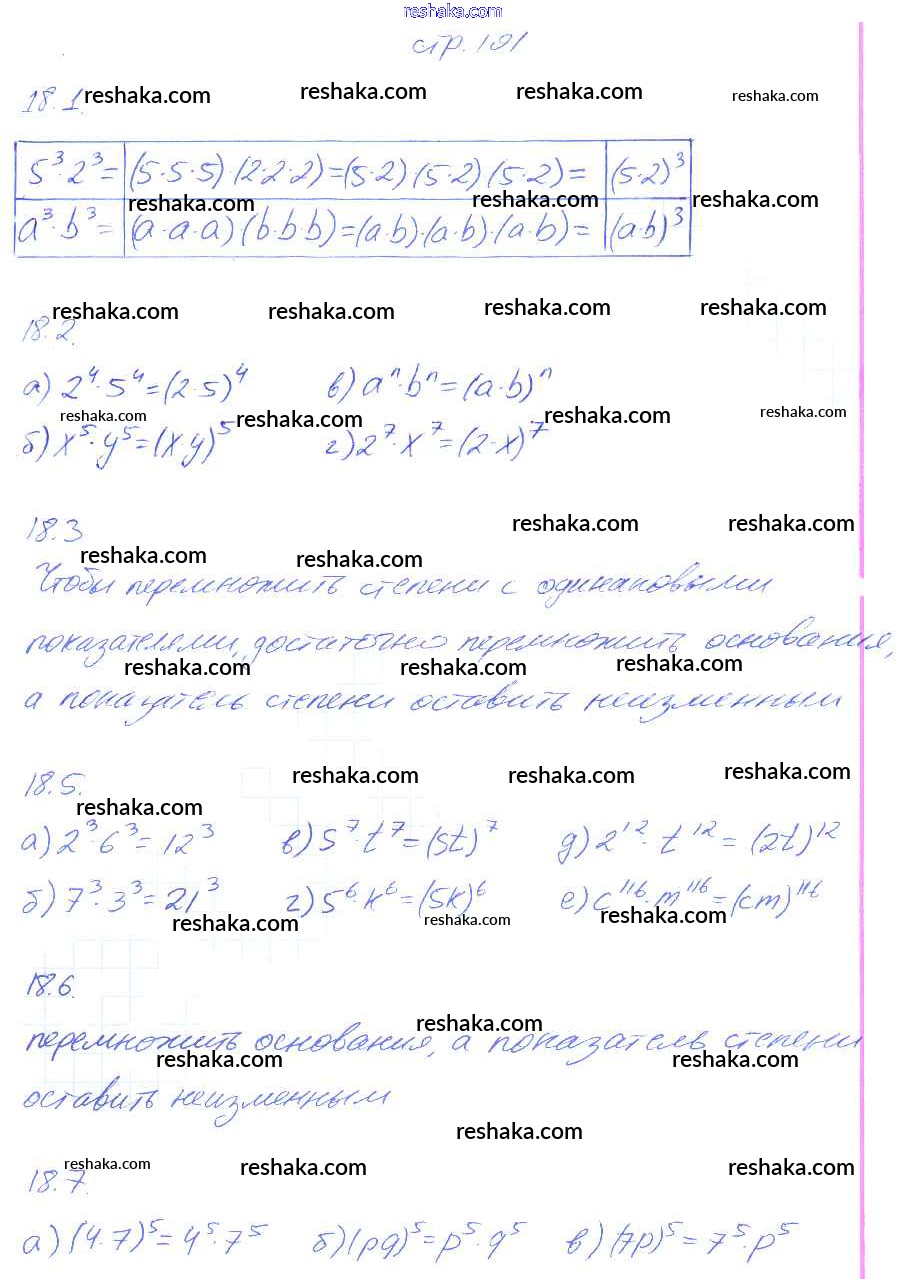 reshaka.com
стр. 101
18.1. reshaka.com reshaka.com reshaka.com reshaka.com
5³·2³= (5·5·5)·(2·2·2)=(5·2)(5·2)(5·2)= (5·2)³
reshaka.com reshaka.com reshaka.com
a³·b³= (a·a·a)(b·b·b)=(a·b)·(a·b)·(a·b)= (a·b)³
reshaka.com reshaka.com reshaka.com reshaka.com
18.2.
а) 2⁴·5⁴=(2·5)⁴ в) aⁿ·bⁿ=(a·b)ⁿ
reshaka.com reshaka.com reshaka.com reshaka.com
б) x⁵·y⁵=(x·y)⁵ г) 2⁷·x⁷=(2·x)⁷
18.3 reshaka.com reshaka.com
reshaka.com reshaka.com
Чтобы перемножить степени с одинаковыми
показателями, достаточно перемножить основания,
reshaka.com reshaka.com reshaka.com
а показатель степени оставить неизменным
18.5. reshaka.com reshaka.com reshaka.com
reshaka.com
а) 2³·6³=12³ в) 5⁷·t⁷=(5t)⁷ д) 2¹²·t¹²=(2t)¹²
б) 7³·3³=21³ г) 5⁶·k⁶=(5k)⁶ е) c¹¹⁶·m¹¹⁶=(cm)¹¹⁶
reshaka.com reshaka.com reshaka.com
18.6.
reshaka.com
перемножить основания, а показатель степени
reshaka.com reshaka.com
оставить неизменным
reshaka.com
18.7. reshaka.com reshaka.com reshaka.com
а) (4·7)⁵=4⁵·7⁵ б) (pq)⁵=p⁵·q⁵ в) (7p)⁵=7⁵·p⁵